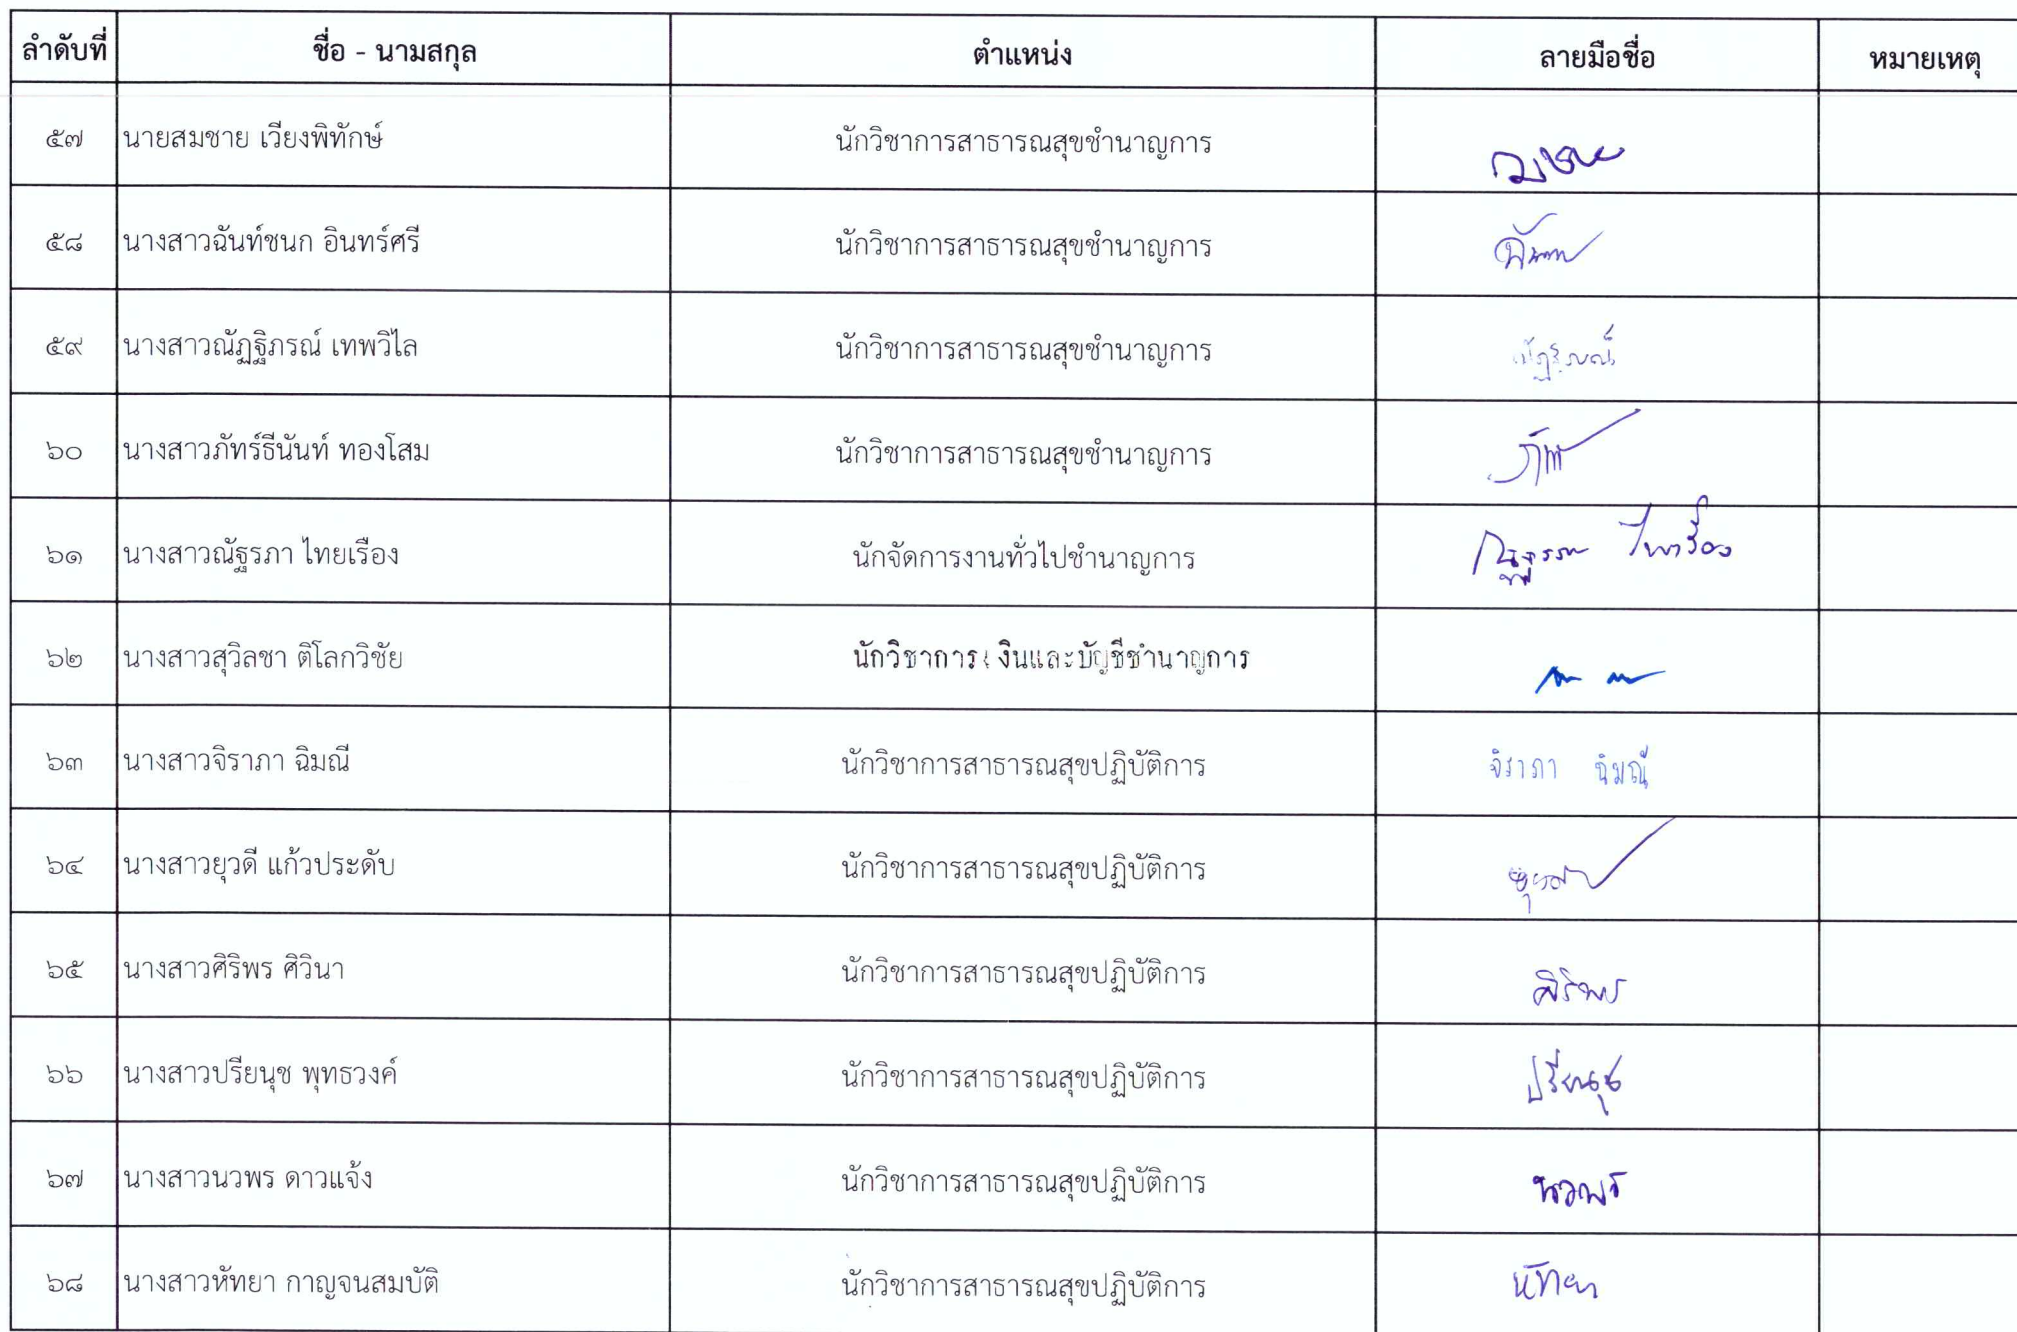 ลำดับที่ ชื่อ - นามสกุล ตำแหน่ง ลายมือชื่อ หมายเหตุ
๕๗ นายสมชาย เวียงพิทักษ์ นักวิชาการสาธารณสุขชำนาญการ
๕๘ นางสาวฉันท์ชนก อินทร์ศรี นักวิชาการสาธารณสุขชำนาญการ
๕๙ นางสาวณัฏฐิภรณ์ เทพวิไล นักวิชาการสาธารณสุขชำนาญการ ณัฏฐิภรณ์
๖๐ นางสาวภัทร์ธีนันท์ ทองโสม นักวิชาการสาธารณสุขชำนาญการ
๖๑ นางสาวณัฐรภา ไทยเรือง นักจัดการงานทั่วไปชำนาญการ
๖๒ นางสาวสุวิลชา ติโลกวิชัย นักวิชาการเงินและบัญชีชำนาญการ
๖๓ นางสาวจิราภา ฉิมณี นักวิชาการสาธารณสุขปฏิบัติการ จิราภา ฉิมณี
๖๔ นางสาวยุวดี แก้วประดับ นักวิชาการสาธารณสุขปฏิบัติการ
๖๕ นางสาวศิริพร ศิวินา นักวิชาการสาธารณสุขปฏิบัติการ ศิริพร
๖๖ นางสาวปรียนุช พุทธวงค์ นักวิชาการสาธารณสุขปฏิบัติการ ปรียนุช
๖๗ นางสาวนวพร ดาวแจ้ง นักวิชาการสาธารณสุขปฏิบัติการ นวพร
๖๘ นางสาวหัทยา กาญจนสมบัติ นักวิชาการสาธารณสุขปฏิบัติการ หัทยา